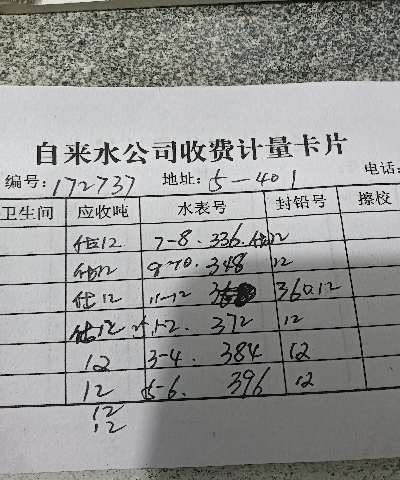 自来水公司收费计量卡片
编号: 172737 地址: 5-401 电话:
卫生间 应收吨 水表号 封铅号 擦校
估12 7-8. 336. 估12
估12 9-10. 348 12
估12 11-12 360.12
估12 1-2. 372 12
12 3-4. 384 12
12 5-6. 396 12
12
12